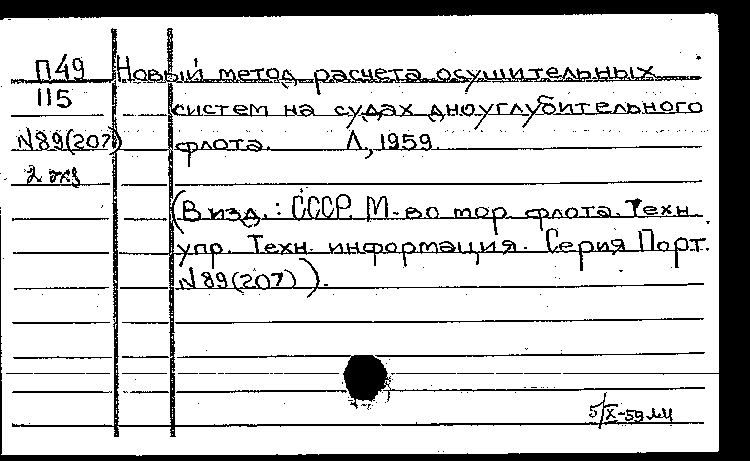 П49 Новый метод расчета осушительных
115 систем на судах дноуглубительного
N89(207) флота. Л, 1959.
2 экз
(В изд.: СССР. М-во мор. флота. Техн.
упр. Техн. информация. Серия Порт.
N89(207)).
5/X-59